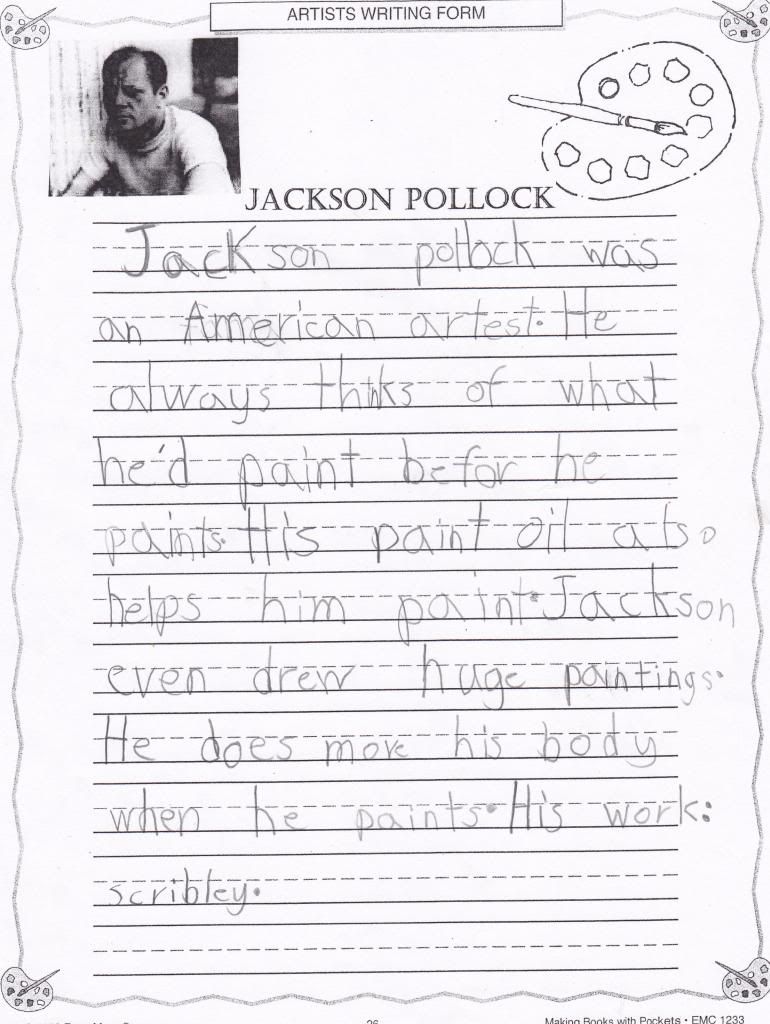 ARTISTS WRITING FORM
JACKSON POLLOCK
Jackson pollock was
an American artest. He
always thinks of what
he'd paint befor he
paints. His paint oil also
helps him paint. Jackson
even drew huge paintings.
He does move his body
when he paints. His work:
scribley.
26
Making Books with Pockets • EMC 1233